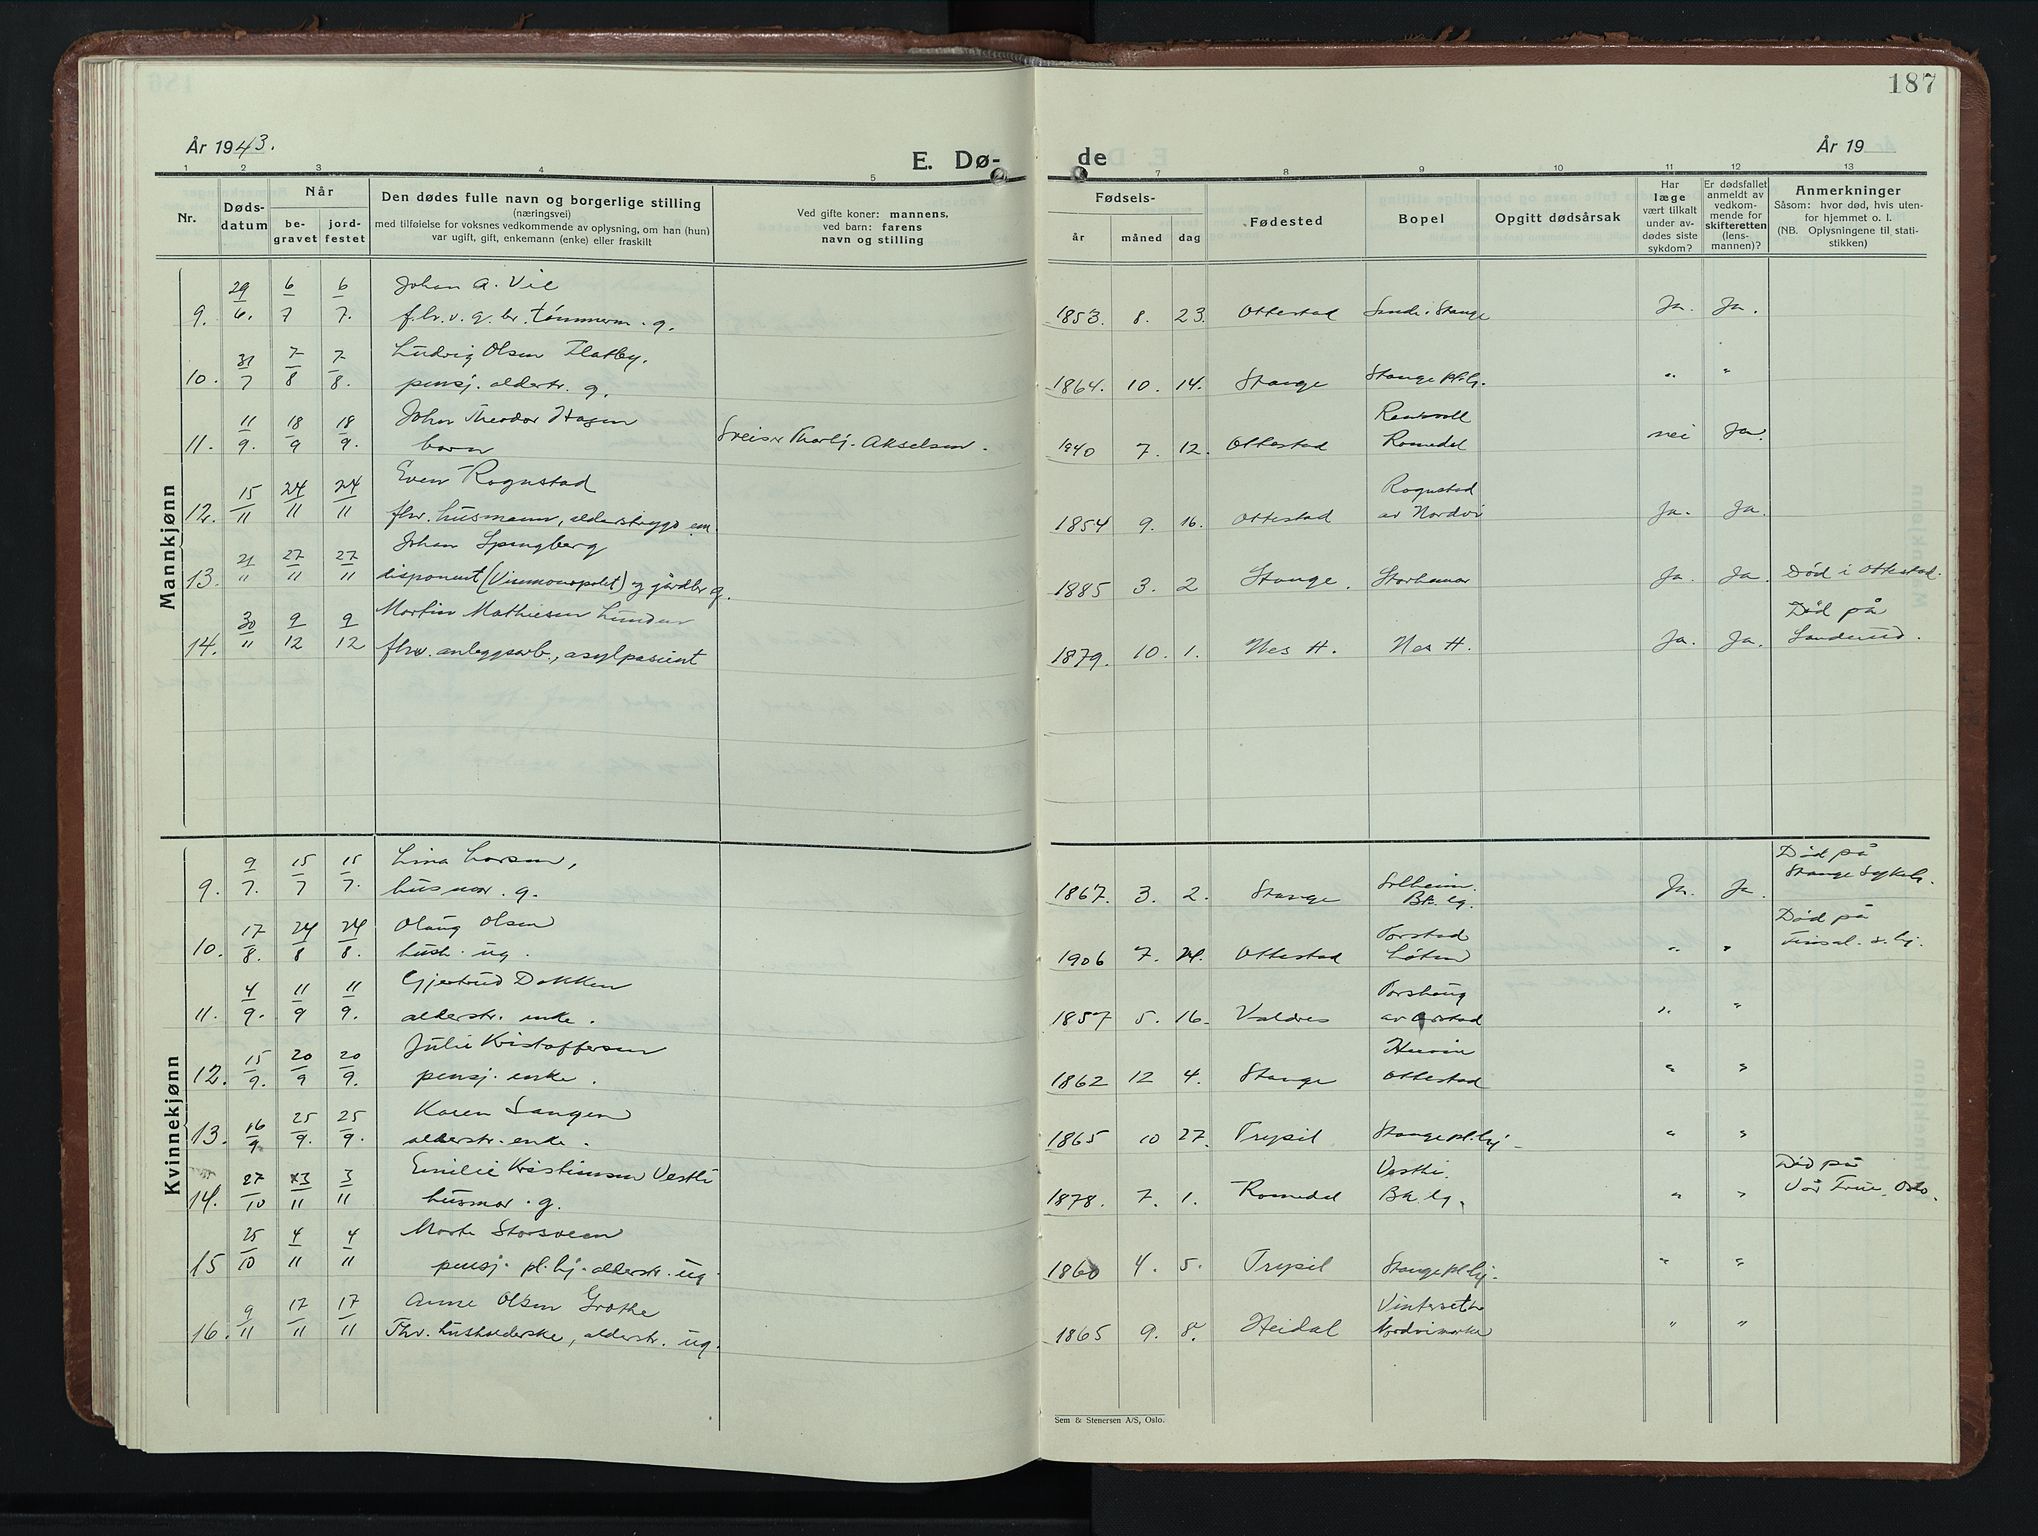 187
År 1943.
E. Dø-
de
År 19
1 2 3 4 5 7 8 9 10 11 12 13
Nr.
Døds-
datum
Når
be-
gravet
jord-
festet
Den dødes fulle navn og borgerlige stilling
(næringsvei)
med tilføielse for voksnes vedkommende av oplysning, om han (hun)
var ugift, gift, enkemann (enke) eller fraskilt
Ved gifte koner: mannens,
ved barn: farens
navn og stilling
Fødsels-
år
måned
dag
Fødested
Bopel
Opgitt dødsårsak
Har
læge
vært tilkalt
under av-
dødes siste
sykdom?
Er dødsfallet
anmeldt av
vedkom-
mende for
skifteretten
(lens-
mannen)?
Anmerkninger
Såsom: hvor død, hvis uten-
for hjemmet o. l.
(NB. Oplysningene til stati-
stikken)
Mannkjønn
29 6 6 Johan A. Vik
9. 6. 7 7. f.hv. v. g. br. tømmerm. g. 1853. 8. 23. Ottestad Sande i Stange Ja. Ja.
31 7 7 Ludvig Olsen Flatby.
10. 7 8 8. pensj. alderstr. g. 1864. 10. 14. Stange Stange pl.hj. " "
11 18 18 John Theodor Hagen
11. 9. 9 9. barn Sveiser Thorlj. Akselsen. 1940 7. 12. Ottestad Romedal nei Ja.
15 24 24 Even Rognstad Rognstad
12. 11 11 11 fhv. husmann, alderstrygd em. 1854 9. 16. Ottestad av Nordvi Ja. Ja.
21 27 27 Johan Spangberg
13. " 11 11 disponent (Vinmonopolet) og gårdbr g. 1885 3. 2 Stange. Storhamar Ja. Ja. Død i Ottestad.
30 9 9 Martin Mathiesen Lunden Død på
14. " 12 12 fhv. anleggsarb., asylpasient 1879. 10. 1. Nes H. Nes H. Ja. Ja. Sanderud.
Kvinnekjønn
9 15 15 Lina Larsen, Solheim. Død på
9. 7. 7 7. husmor. g. 1867. 3. 2. Stange Bk. lg. Ja. Ja. Stange Sykeh.
17 24 24 Olaug Olsen Torstad Død på
10. 8. 8 8. hush. ug. 1906 7. 24. Ottestad Løten " "
4 11 11 Gjertrud Dokken Torshaug
11. 9. 9 9. alderstr. enke. 1857 5. 16. Valdres av Arstad " "
15 20 20 Julie Kristoffersen
12. 9. 9 9. pensj. enke. 1862 12 4. Stange Ottestad " "
16 25 25 Karen Sangen
13. 9 9. 9. alderstr. enke. 1865 10 27. Trysil Stange pl.hj. " "
27 3 3 Emilie Kristiansen Vestli Vestli. Død på
14. 10 11 11 husmor. g. 1878. 7. 1. Romedal Bk. lg. " " Vår Frue, Oslo.
25 4 4 Marte Storsveen
15 10 11 11 pensj. pl.hj. alderstr. ug. 1860 4. 5. Trysil Stange pl.hj. " "
9 17 17 Anne Olsen Grothe
16. 11 11 11 Fhv. husholderske, alderstr. ug. 1865 9. 8. Heidal Nordvimarka " "
Sem & Stenersen A/S, Oslo.